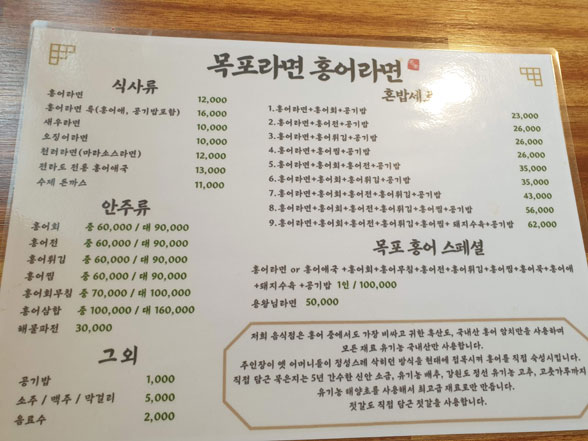 목포라면 홍어라면
식사류
홍어라면 12,000
홍어라면 특(홍어애, 공기밥포함) 16,000
새우라면 10,000
오징어라면 10,000
천러라면(마라소스라면) 12,000
전라도 전통 홍어애국 13,000
수제 돈까스 11,000
안주류
홍어회 중 60,000 / 대 90,000
홍어전 중 60,000 / 대 90,000
홍어튀김 중 60,000 / 대 90,000
홍어찜 중 60,000 / 대 90,000
홍어회무침 중 70,000 / 대 100,000
홍어삼합 중 100,000 / 대 160,000
해물파전 30,000
그외
공기밥 1,000
소주 / 맥주 / 막걸리 5,000
음료수 2,000
혼밥세트
1.홍어라면+홍어회+공기밥 23,000
2.홍어라면+홍어전+공기밥 26,000
3.홍어라면+홍어튀김+공기밥 26,000
4.홍어라면+홍어찜+공기밥 26,000
5.홍어라면+홍어회+홍어전+공기밥 35,000
6.홍어라면+홍어회+홍어튀김+공기밥 35,000
7.홍어라면+홍어회+홍어전+홍어튀김+공기밥 43,000
8.홍어라면+홍어회+홍어전+홍어튀김+홍어찜+공기밥 56,000
9.홍어라면+홍어회+홍어전+홍어튀김+홍어찜+ 돼지수육+공기밥 62,000
목포 홍어 스페셜
홍어라면 or 홍어애국 +홍어회+홍어무침+홍어전+홍어튀김+홍어찜+홍어묵+홍어애
+돼지수육 +공기밥 1인 / 100,000
용왕님라면 50,000
저희 음식점은 홍어 중에서도 가장 비싸고 귀한 흑산도, 국내산 홍어 암치만을 사용하며
모든 재료 유기농 국내산만 사용합니다.
주인장이 옛 어머니들이 정성스레 삭히던 방식을 현대에 접목시켜 홍어를 직접 숙성시킵니다.
직접 담근 묵은지는 5년 간수한 신안 소금, 유기농 배추, 강원도 정선 유기농 고추, 고춧가루까지
유기농 태양초를 사용해서 최고급 재료로만 만듭니다.
젓갈도 직접 담근 젓갈을 사용합니다.